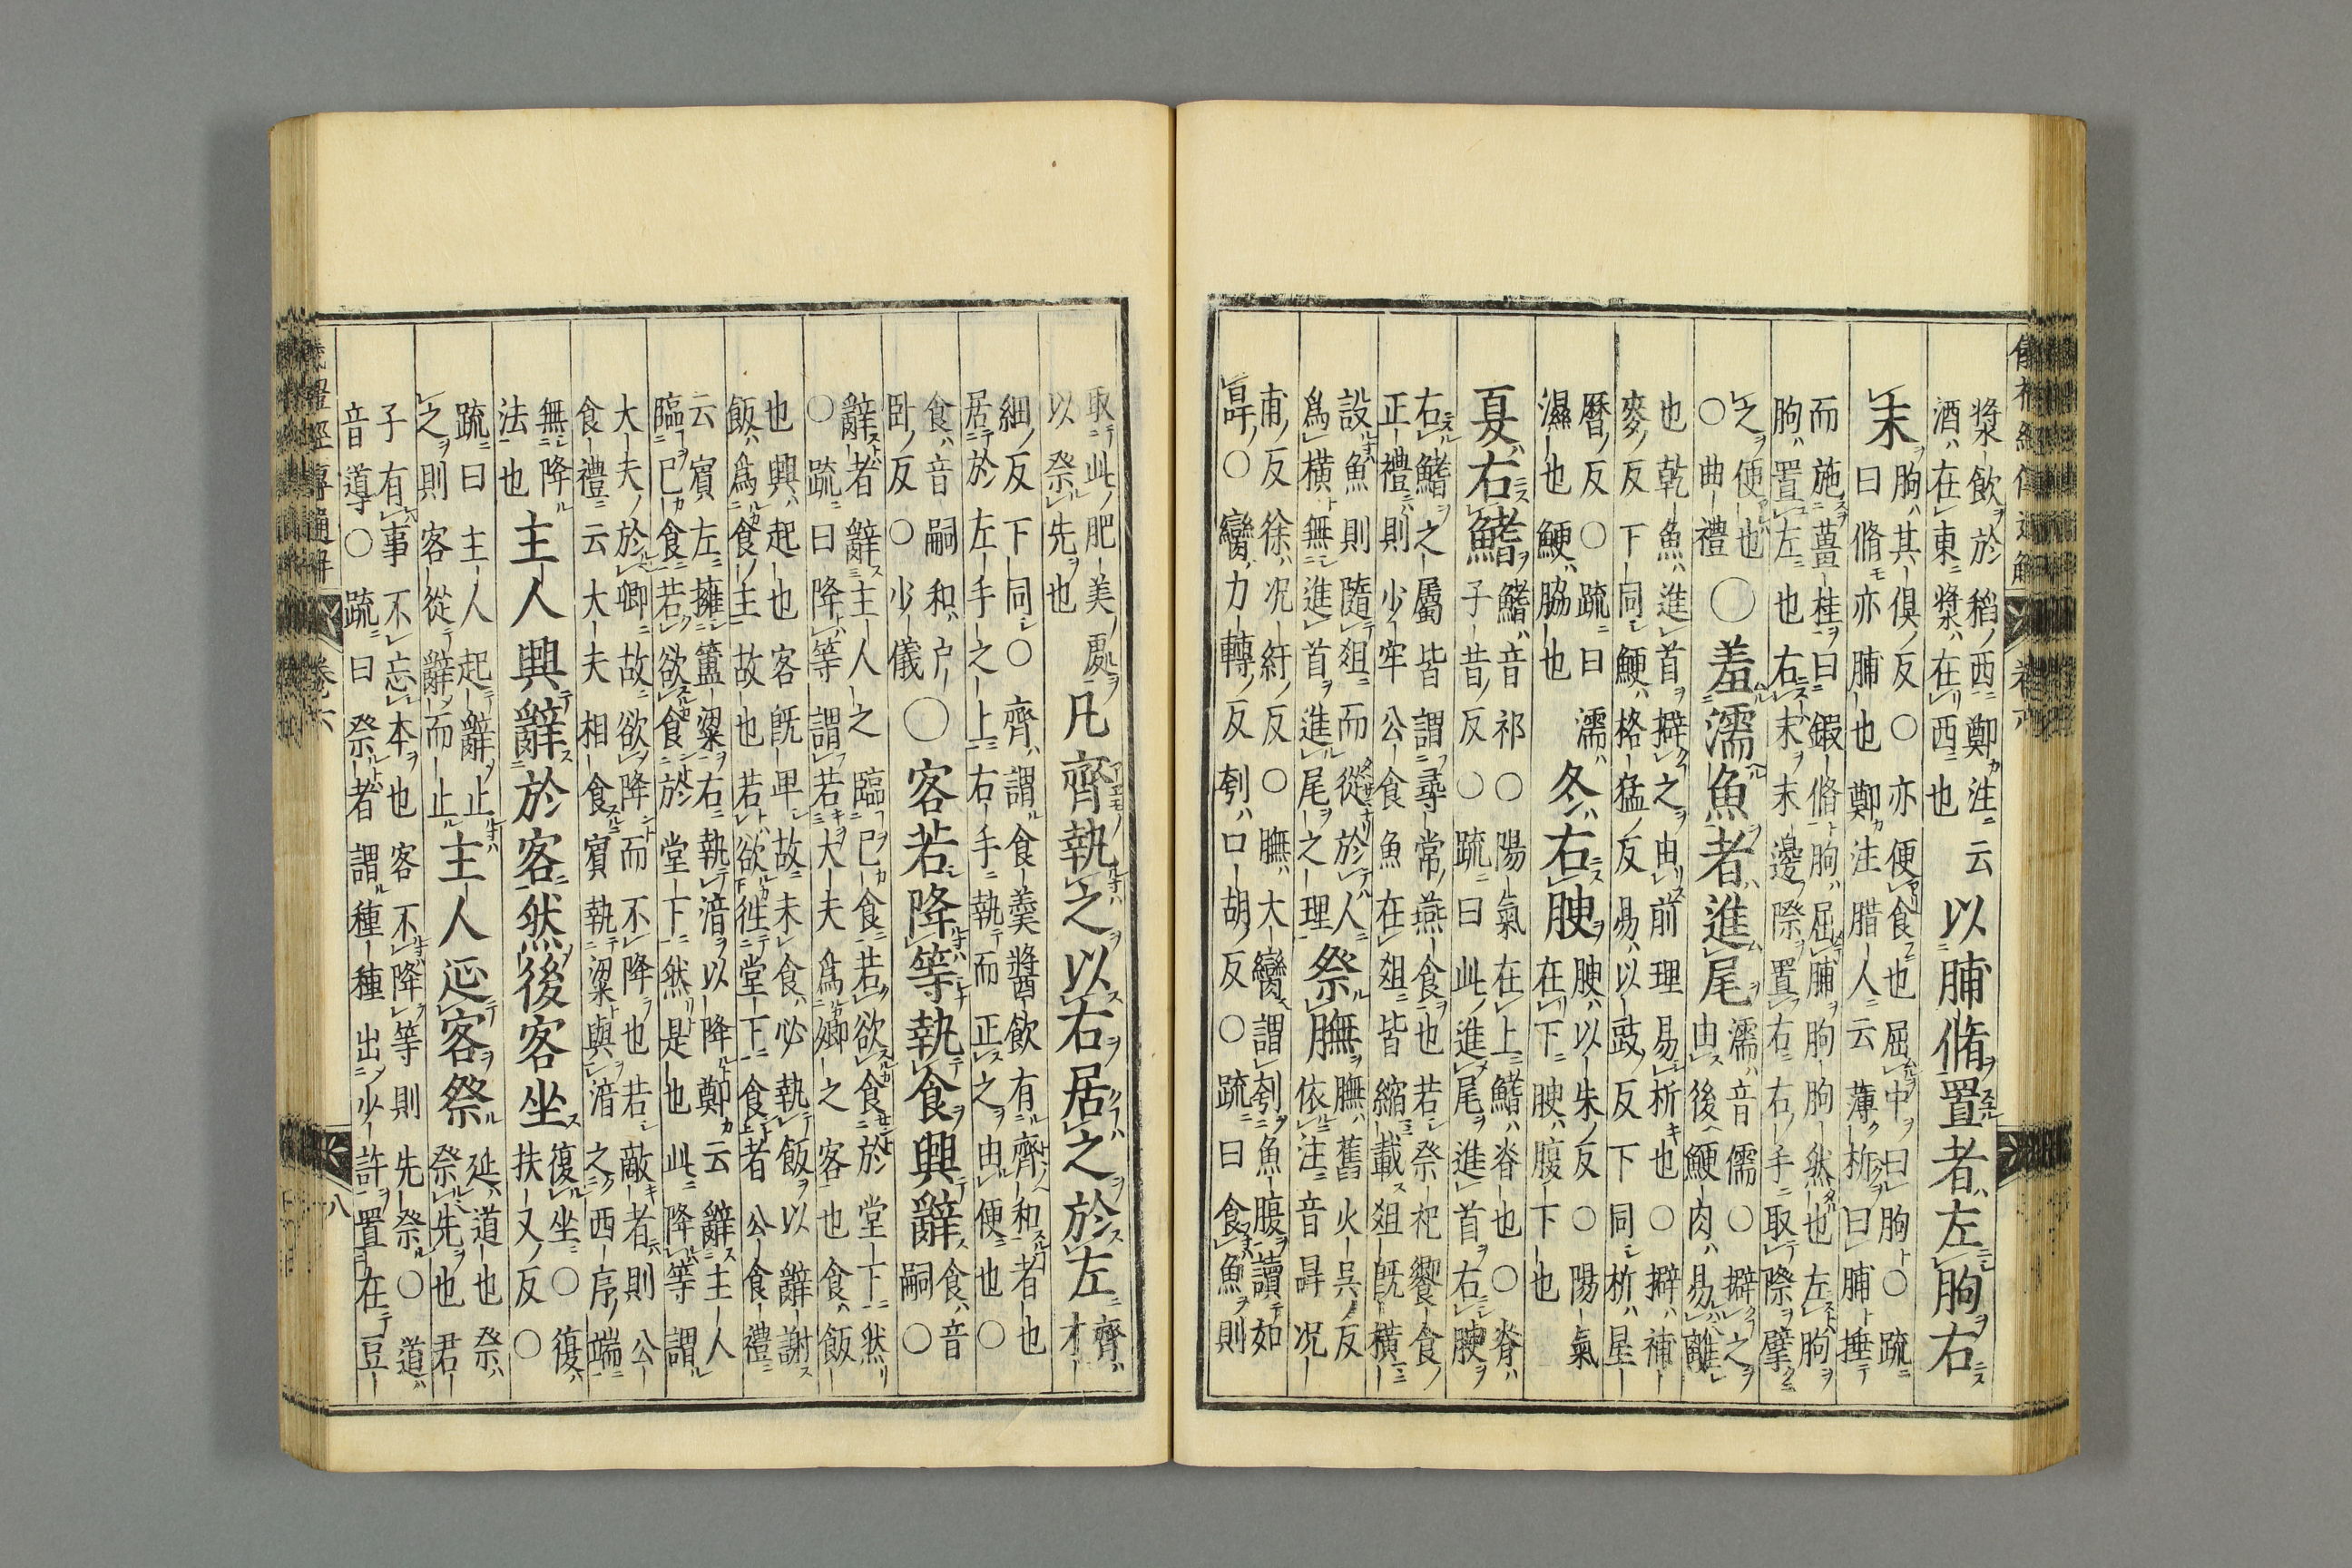 漿飲於稻西鄭注云
酒在東漿在西也
以脯脩置者左朐右
末
朐其俱反○亦便食也屈中曰朐○疏
曰脩亦脯也鄭注腊人云薄析曰脯捶
而施薑桂曰鍛脩朐屈脯朐朐然也左朐
朐置左也右末末邊際置右右手取際擘
之便也
○曲禮
○羞濡魚者進尾
濡音儒○擗之
由後鯁肉易離
也乾魚進首擗之由前理易析也○擗補
麥反下同鯁格猛反易以豉反下同析星
曆反○疏曰濡
濕也鯁脇也
冬右腴
腴以朱反○陽氣
在下腴腹下也
夏右鰭
鰭音祁○陽氣在上鰭脊也○脊
子昔反○疏曰此進尾進首右腴
右鰭之屬皆謂尋常燕食也若祭祀饗食
正禮則少牢公食魚在俎皆縮載俎既橫
設魚則隨俎而從於人
爲橫無進首進尾之理
祭膴
膴舊火吳反
依注音冔况
甫反徐況紆反○膴大臠謂刳魚腹讀如
冔○臠力轉反刳口胡反○疏曰食魚則
取此肥美處
以祭先也
凡齊執之以右居之於左
齊
才
細反下同○齊謂食羹醬飲有齊和者也
居於左手之上右手執而正之由便也○
食音嗣和户
卧反○少儀
○客若降等執食興辭
食音
嗣○
辭者辭主人之臨已食若欲食於堂下然
○疏曰降等謂若大夫爲卿之客也食飯
也興起也客既卑故未食必執飯以辭謝
飯爲食主故也若欲往堂下食者公食禮
云賓左擁簠粱右執湆以降鄭云辭主人
臨已食若欲食於堂下然是也此降等謂
大夫於卿故欲降而不降也若敵者則公
食禮云大夫相食賓執粱與湆之西序端
無降
法也
主人興辭於客然後客坐
復坐○復
扶又反○
疏曰主人起辭止
之則客從辭而止
主人延客祭
延道也祭
祭先也君
子有事不忘本也客不降等則先祭○道
音導○疏曰祭者謂種種出少許置在豆
儀禮經傳通解 卷六 八